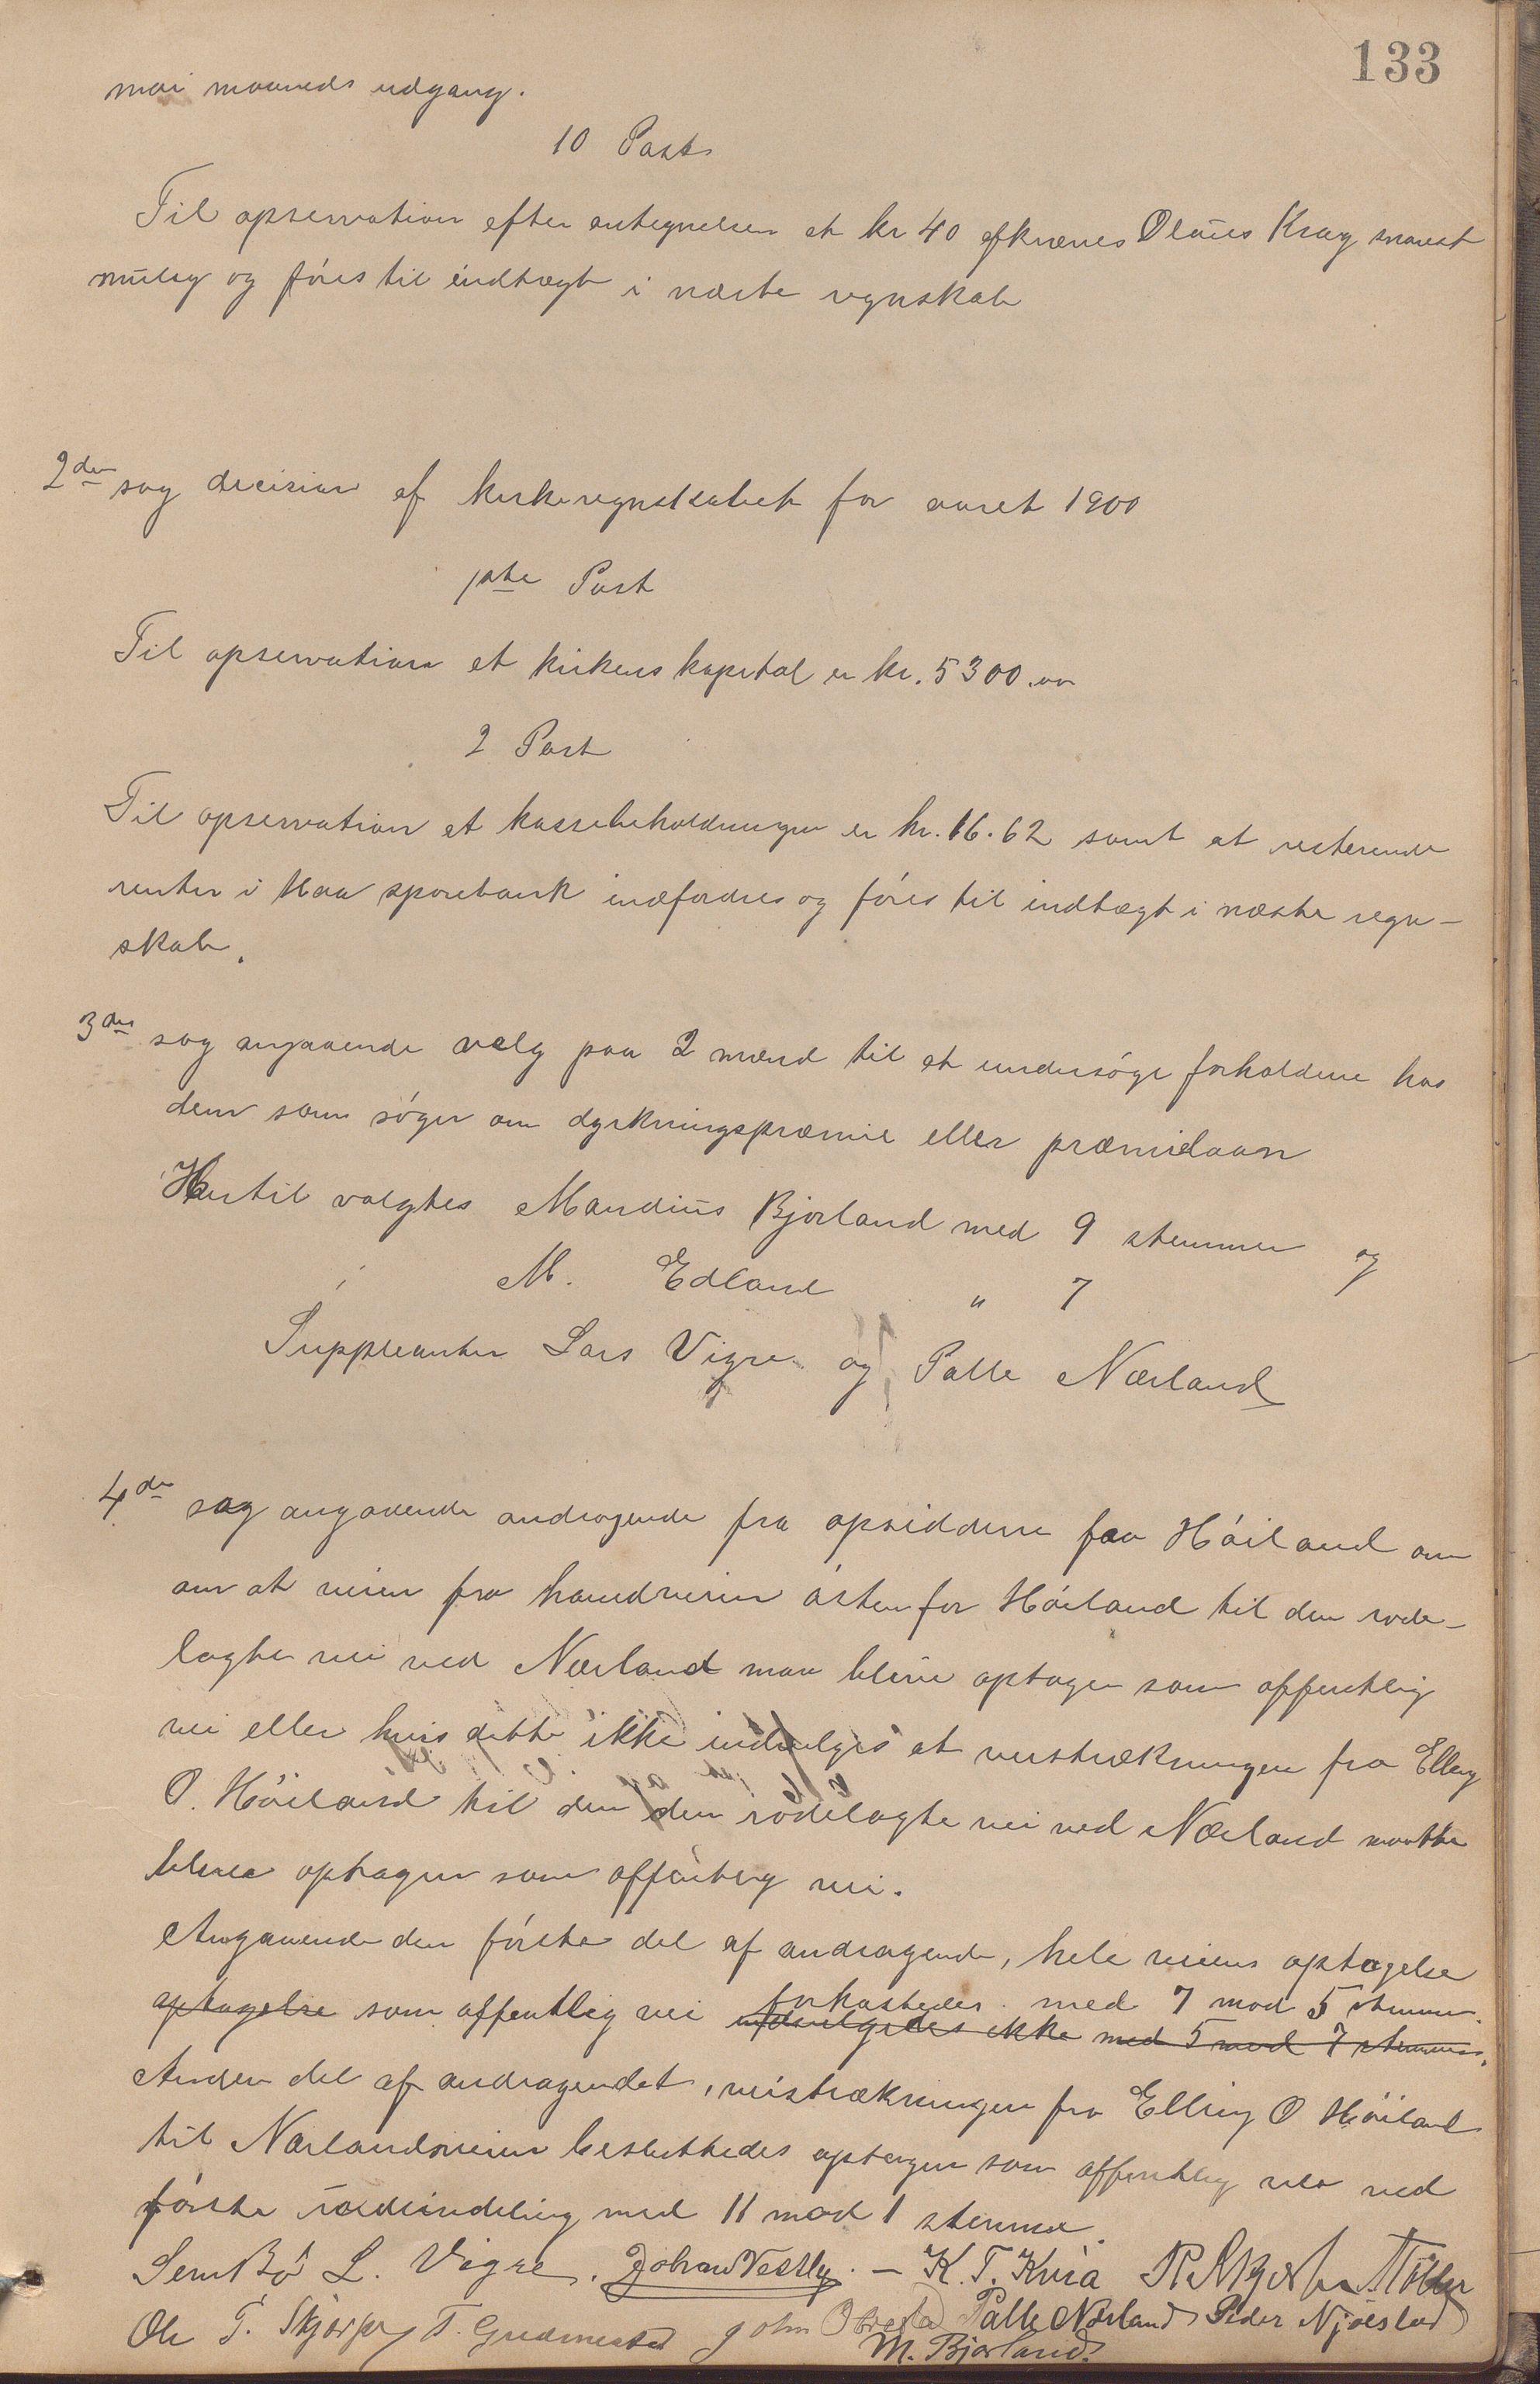 133
mai maaneds udgang.
10 Post
Til opservation efter antegnelsen at kr 40 afkræves Olaus Krag snarest
mulig og föres til indtægt i næste regnskab
2den sag decision af kirkeregnskabet for aaret 1900
1ste Post
Til opservation at kirkens kapital er kr. 5300.oo
2 Post
Til opservation at kassebeholdningen er kr. 16.62 samt at resterende
renter i Haa sparebank indfordres og föres til indtægt i næste regn-
skab.
3die sag angaaende valg paa 2 mænd til at undersöge forholdene hos
dem som söger om dyrkningspræmie eller præmielaan
Hertil valgtes Mandius Bjorland med 9 stemmer og
M. Edland " 7
Suppleanter Lars Vigre og Palle Nærland
4de sag angaaende andragende fra opsidderne paa Höiland om
om at veien fra hovedveien östen for Höiland til den rode-
lagte vei ved Nærland maa blive optagen som offentlig
vei eller hvis dette ikke indvilges at veistrækningen fra Elling
O. Höiland til den den rodelagte vei ved Nærland maatte
blive optagen som offentlig vei.
Angaaende den förste del af andragende, hele veiens optagelse
optagelse som offentlig vei forkastedes med 7 mod 5 stemmer.
indvilgedes ikke med 5 mod 7 stemmer.
Anden del af andragendet, veistrækningen fra Elling O Höiland
til Nærlandsveien besluttedes optagen som offentlig vei ved
förste rodeindeling med 11 mod 1 stemme.
Sem Bö L. Vigre. Johan Vestly. — K. T. Kvia
Ole T. Skjærpe T. Gudmestad John Obrestad Palle Nærland Peder Njölstad
M. Bjorland.